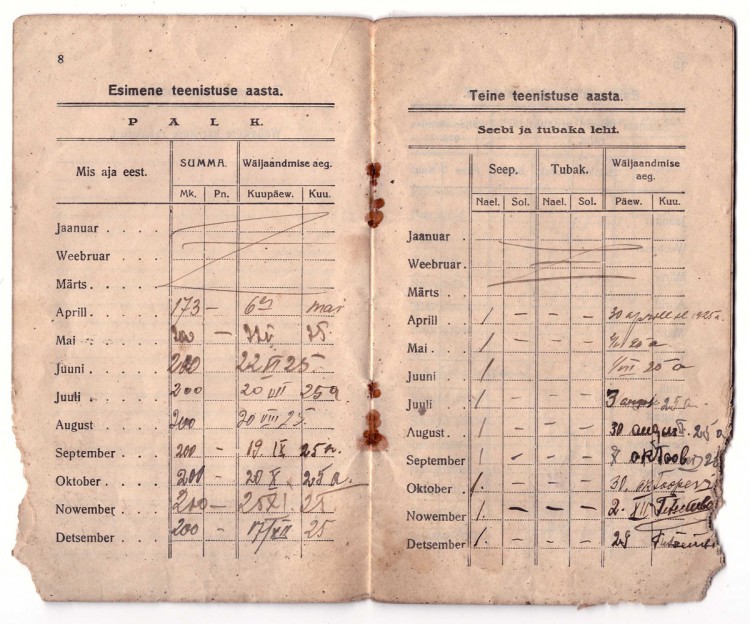 8
Esimene teenistuse aasta.
PALK.
Mis aja eest. SUMMA. Wäljaandmise aeg.
Mk. Pn. Kuupäew. Kuu.
Jaanuar
Weebruar
Märts
Aprill 173 — mai
Mai 200 —
Juuni 200 22 VI 25
Juuli 200 20 VII 25 a.
August 200 20 VIII 25.
September 200 — 19. IX 25 a.
Oktober 200 — 20 X 25 a.
Nowember 200 — 25 XI 25
Detsember 200 — 17/XII 25
Teine teenistuse aasta.
Seebi ja tubaka leht.
Seep. Tubak. Wäljaandmise aeg.
Nael. Sol. Nael. Sol. Päew. Kuu.
Jaanuar
Weebruar
Märts
Aprill 1 — — — 30 1925 a.
Mai 1 — — — 25 a
Juuni 1 25 a
Juuli 1 — — — 3 25 a.
August 1. — — — 30 august. 25 a
September 1 — — — 8 oktoob
Oktober 1. — — — 30. oktoober
Nowember 1. — — — 2. XII
Detsember 1. — — — 28